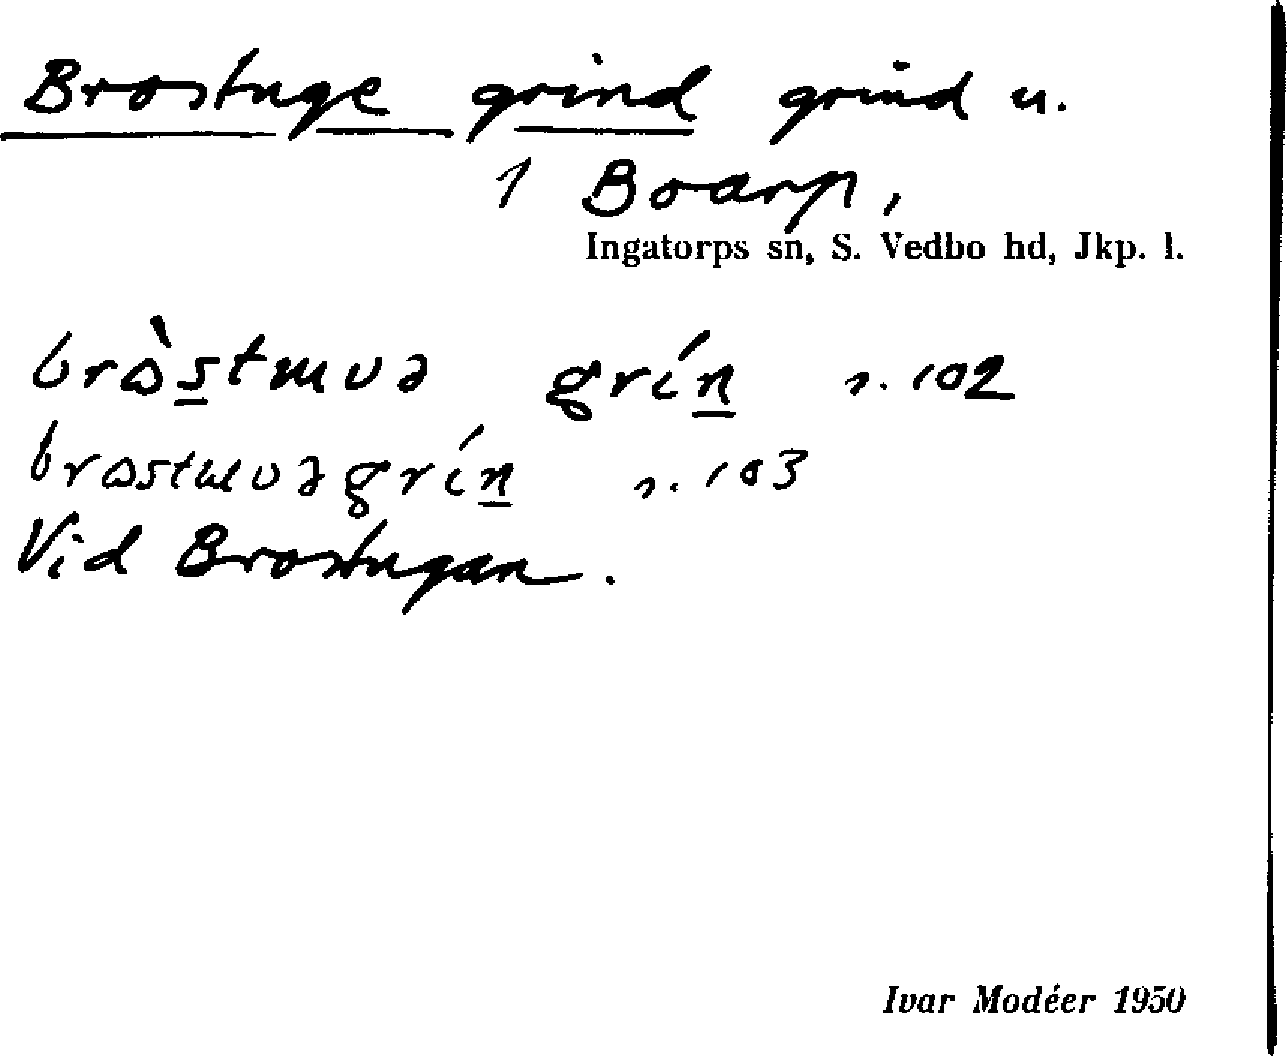 Brostuge grind grind u.
1 Boarp,
Ingatorps sn, S. Vedbo hd, Jkp. l.
s. 102
s. 103
Vid Brostugan.
Ivar Modéer 1950